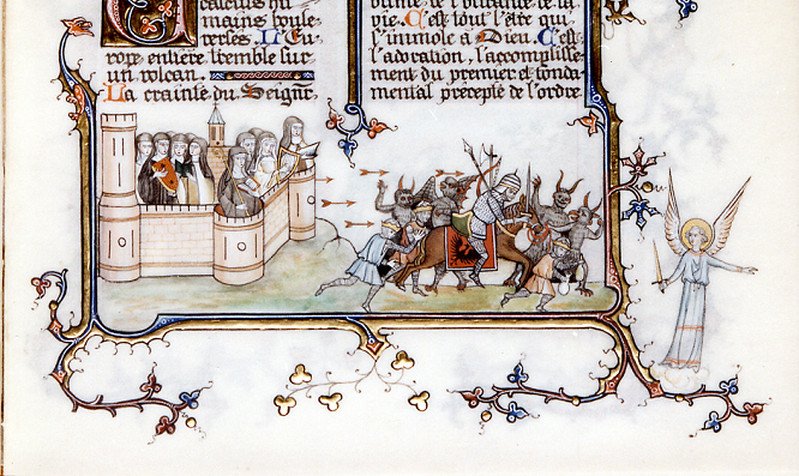 calculs hu
mains boule
versés. L'Eu
rope entière tremble sur
un volcan.
La crainte du Seignr
de l'outrance de la
vie. C'est tout l'être qui
s'immole à Dieu. C'est
l'adoration, l'accomplisse
ment du premier et fonda
mental précepte de l'ordre